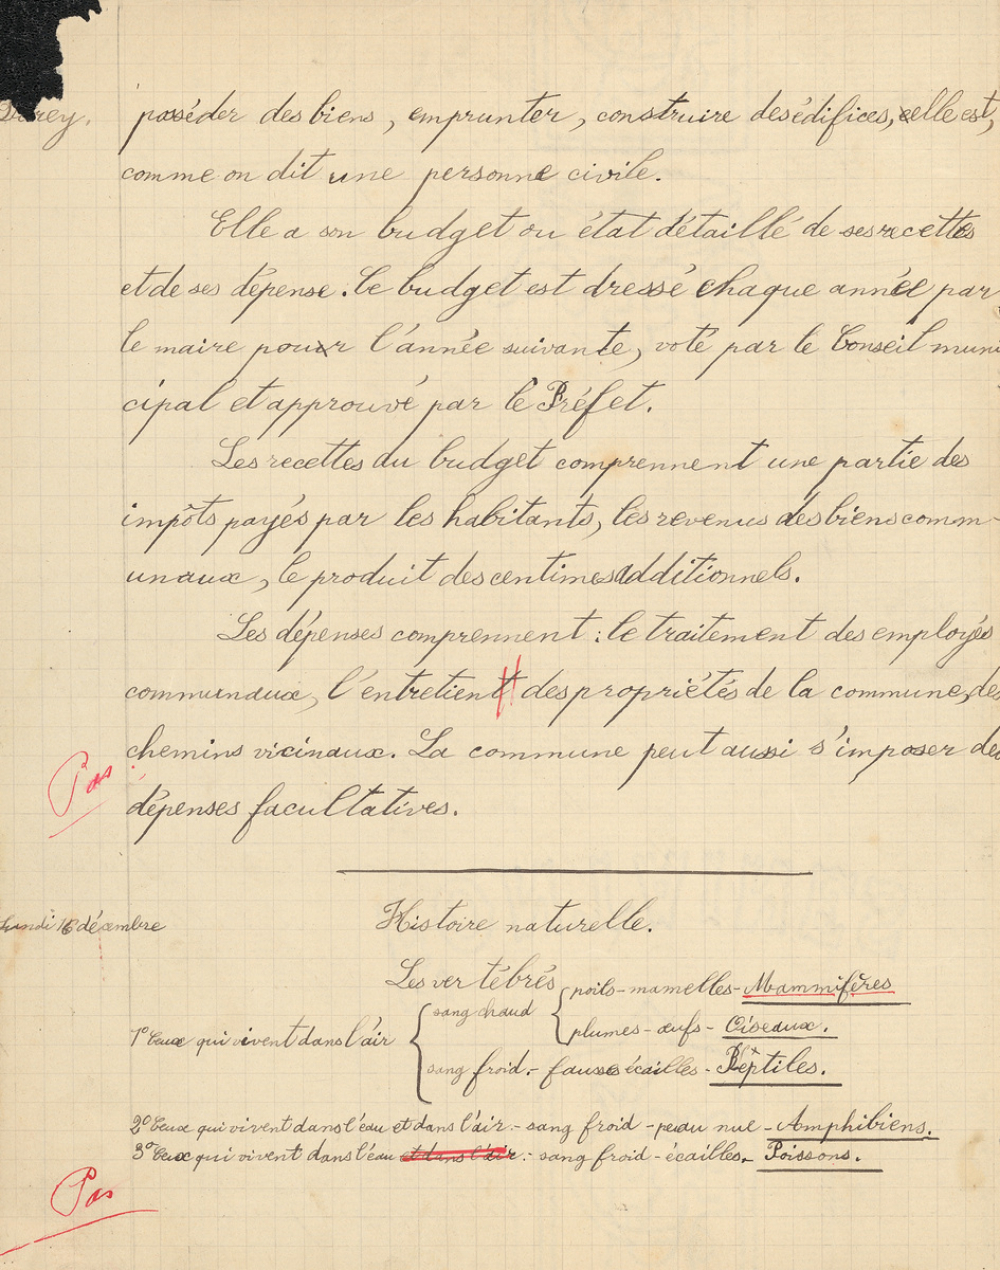 posséder des biens, emprunter, construire des édifices, elle est,
comme on dit une personne civile.
Elle a son budget ou état détaillé de ses recettes
et de ses dépense. Ce budget est dressé chaque année par
le maire pour l'année suivante, voté par le Conseil muni
cipal et approuvé par le Préfet.
Les recettes du budget comprennent une partie des
impôts payés par les habitants, les revenus des biens comm-
unaux, le produit des centimes additionnels.
Les dépenses comprennent : le traitement des employés
communaux, l'entretient des propriétés de la commune, des
chemins vicinaux. La commune peut aussi s'imposer des
Pas
dépenses facultatives.
Lundi 16 décembre
Histoire naturelle.
Les vertébrés
1° Ceux qui vivent dans l'air
sang chaud
poils - mamelles - Mammifères
plumes - œufs - Oiseaux.
sang froid. - fausses écailles - Reptiles.
2° Ceux qui vivent dans l'eau et dans l'air - sang froid - peau nue - Amphibiens.
3° Ceux qui vivent dans l'eau et dans l'air. - sang froid - écailles. - Poissons.
Pas